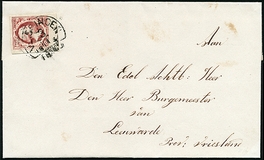 Aan
Den Edel Achtb: Heer
Den Heer Burgemeester
van
Leeuwarde
Prov: Vriesland